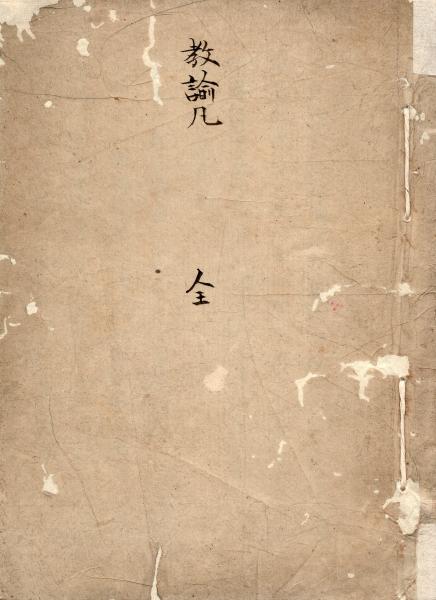 教諭凡
全